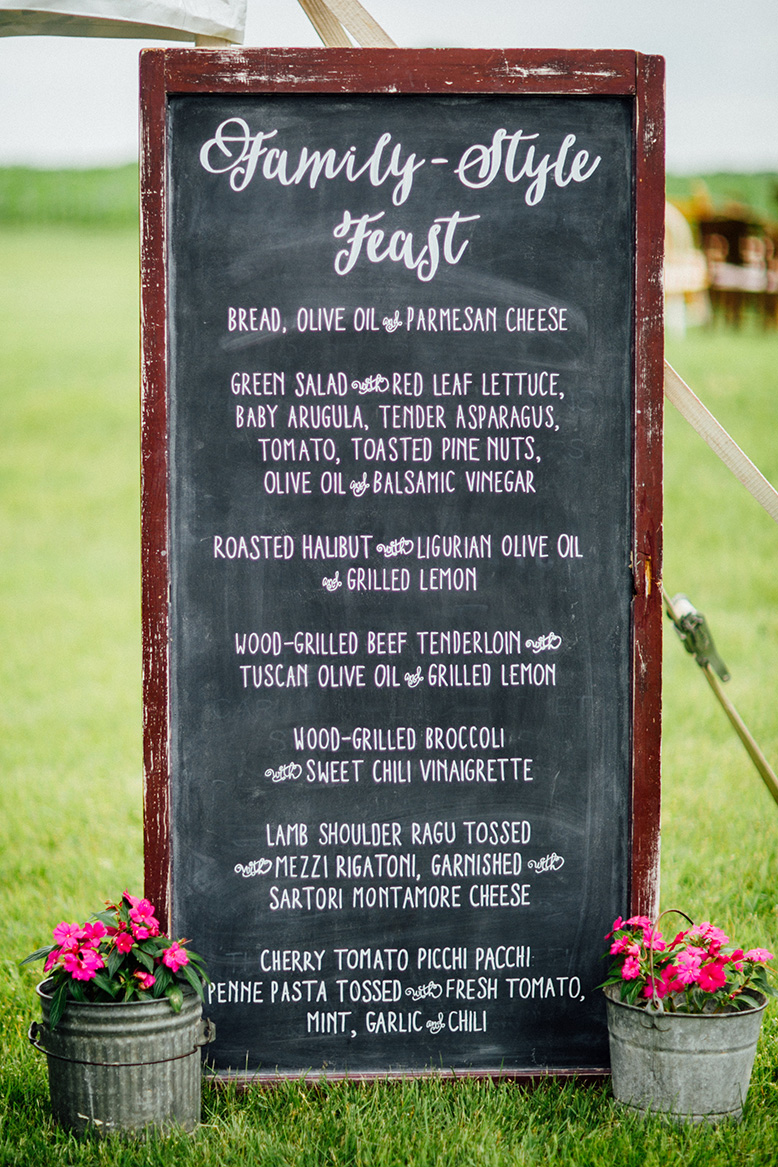 Family-Style
Feast
BREAD, OLIVE OIL and PARMESAN CHEESE
GREEN SALAD with RED LEAF LETTUCE,
BABY ARUGULA, TENDER ASPARAGUS,
TOMATO, TOASTED PINE NUTS,
OLIVE OIL and BALSAMIC VINEGAR
ROASTED HALIBUT with LIGURIAN OLIVE OIL
and GRILLED LEMON
WOOD-GRILLED BEEF TENDERLOIN with
TUSCAN OLIVE OIL and GRILLED LEMON
WOOD-GRILLED BROCCOLI
with SWEET CHILI VINAIGRETTE
LAMB SHOULDER RAGU TOSSED
with MEZZI RIGATONI, GARNISHED with
SARTORI MONTAMORE CHEESE
CHERRY TOMATO PICCHI PACCHI
PENNE PASTA TOSSED with FRESH TOMATO,
MINT, GARLIC and CHILI